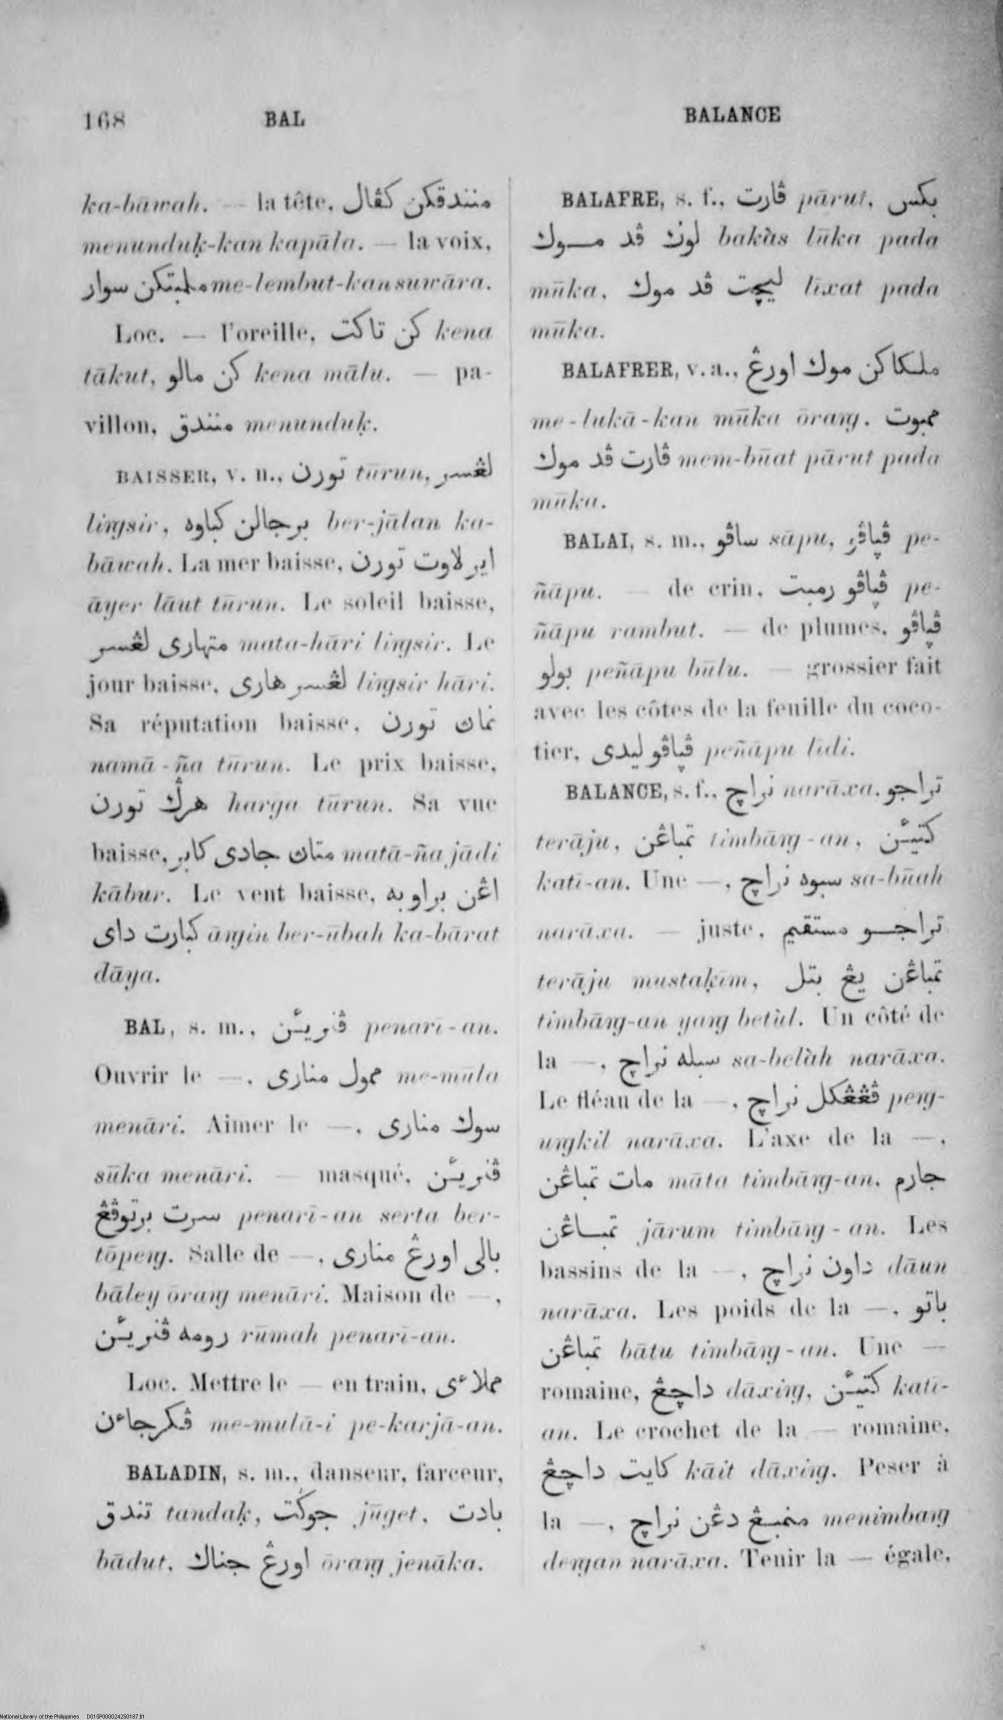 168 BAL BALANCE
ka-bāwah. — la tête, منندقکن کڤال
menunduḳ-kan kapāla. — la voix,
ملمبتکن سوار me-lembut-kan suwāra.
Loc. — l'oreille, کن تاکت kena
tākut, کن مالو kena mālu. — pa-
villon, منندق menunduḳ.
BAISSER, v. n., تورن tūrun, لڠسر
liṅsir, برجالن کباوه ber-jālan ka-
bāwah. La mer baisse, اير لاوت تورن
āyer lāut tūrun. Le soleil baisse,
متهاری لڠسر mata-hāri liṅsir. Le
jour baisse, لڠسر هاری liṅsir hāri.
Sa réputation baisse, نماڽ تورن
namā-ña tūrun. Le prix baisse,
هرڬ تورن harga tūrun. Sa vue
baisse, متاڽ جادی کابر matā-ña jādi
kābur. Le vent baisse, اڠن براوبه
کبارت دای āṅin ber-ūbah ka-bārat
dāya.
BAL, s. m., ڤنريٴن penarī-an.
Ouvrir le —, ممول مناری me-mūla
menāri. Aimer le —, سوك مناری
sūka menāri. — masqué, ڤنريٴن
سرت برتوڤڠ penarī-an serta ber-
tōpeṅ. Salle de —, بالی اورڠ مناری
bāley ōraṅ menāri. Maison de —,
رومه ڤنريٴن rūmah penarī-an.
Loc. Mettre le — en train, مملاءی
ڤکرجاءن me-mulā-i pe-karjā-an.
BALADIN, s. m., danseur, farceur,
تندق tandaḳ, جوڬت jūget, بادت
bādut, اورڠ جناك ōraṅ jenāka.
BALAFRE, s. f., ڤارت pārut, بکس
لوك ڤد موك bakàs lūka pada
mūka, ليچت ڤد موك līxat pada
mūka.
BALAFRER, v. a., ملکاکن موك اورڠ
me-lukā-kan mūka ōraṅ, ممبوت
ڤارت ڤد موك mem-būat pārut pada
mūka.
BALAI, s. m., ساڤو sāpu, ڤڽاڤو pe-
ñāpu. — de crin, ڤڽاڤو رمبت pe-
ñāpu rambut. — de plumes, ڤڽاڤو
بولو peñāpu būlu. — grossier fait
avec les côtes de la feuille du coco-
tier, ڤڽاڤو ليدی peñāpu līdi.
BALANCE, s. f., نراچ narāxa, تراجو
terāju, تمباڠن timbāṅ-an, کتيٴن
katī-an. Une —, سبوه نراچ sa-būah
narāxa. — juste, تراجو مستقيم
terāju mustaḳīm, تمباڠن يڠ بتل
timbāṅ-an yaṅ betùl. Un côté de
la —, سبله نراچ sa-belàh narāxa.
Le fléau de la —, ڤڠڠکل نراچ peṅ-
uṅkil narāxa. L'axe de la —,
مات تمباڠن māta timbāṅ-an, جارم
تمباڠن jārum timbāṅ-an. Les
bassins de la —, داون نراچ dāun
narāxa. Les poids de la —, باتو
تمباڠن bātu timbāṅ-an. Une —
romaine, داچڠ dāxiṅ, کتيٴن katī-
an. Le crochet de la — romaine,
کايت داچڠ kāit dāxiṅ. Peser à
la —, منمبڠ دڠن نراچ menimbaṅ
deṅan narāxa. Tenir la — égale,
National Library of the Philippines